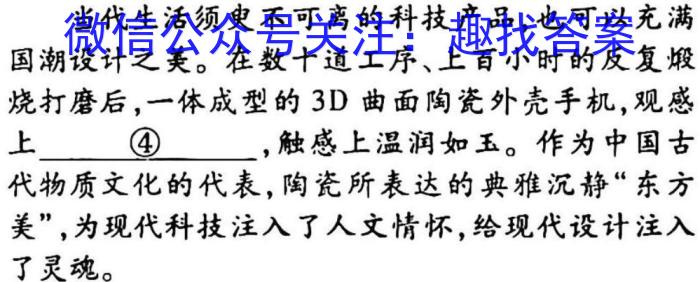 当代生活须臾不可离的科技产品,也可以充满
微信公众号关注：趣找答案
国潮设计之美。在数十道工序、上百小时的反复煅
烧打磨后,一体成型的 3D 曲面陶瓷外壳手机,观感
上④,触感上温润如玉。作为中国古
代物质文化的代表,陶瓷所表达的典雅沉静“东方
美”,为现代科技注入了人文情怀,给现代设计注入
了灵魂。